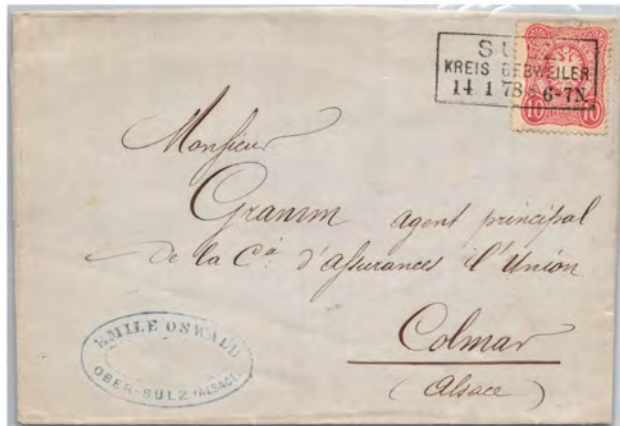 SU
KREIS GEBWEILER
14 1 78 6-7N.
10 10
Monsieur
Gramm agent principal
de la Cie d'Assurances l'Union
Colmar
(Alsace)
EMILE OSWALD
OBER-SULZ (ALSACE)